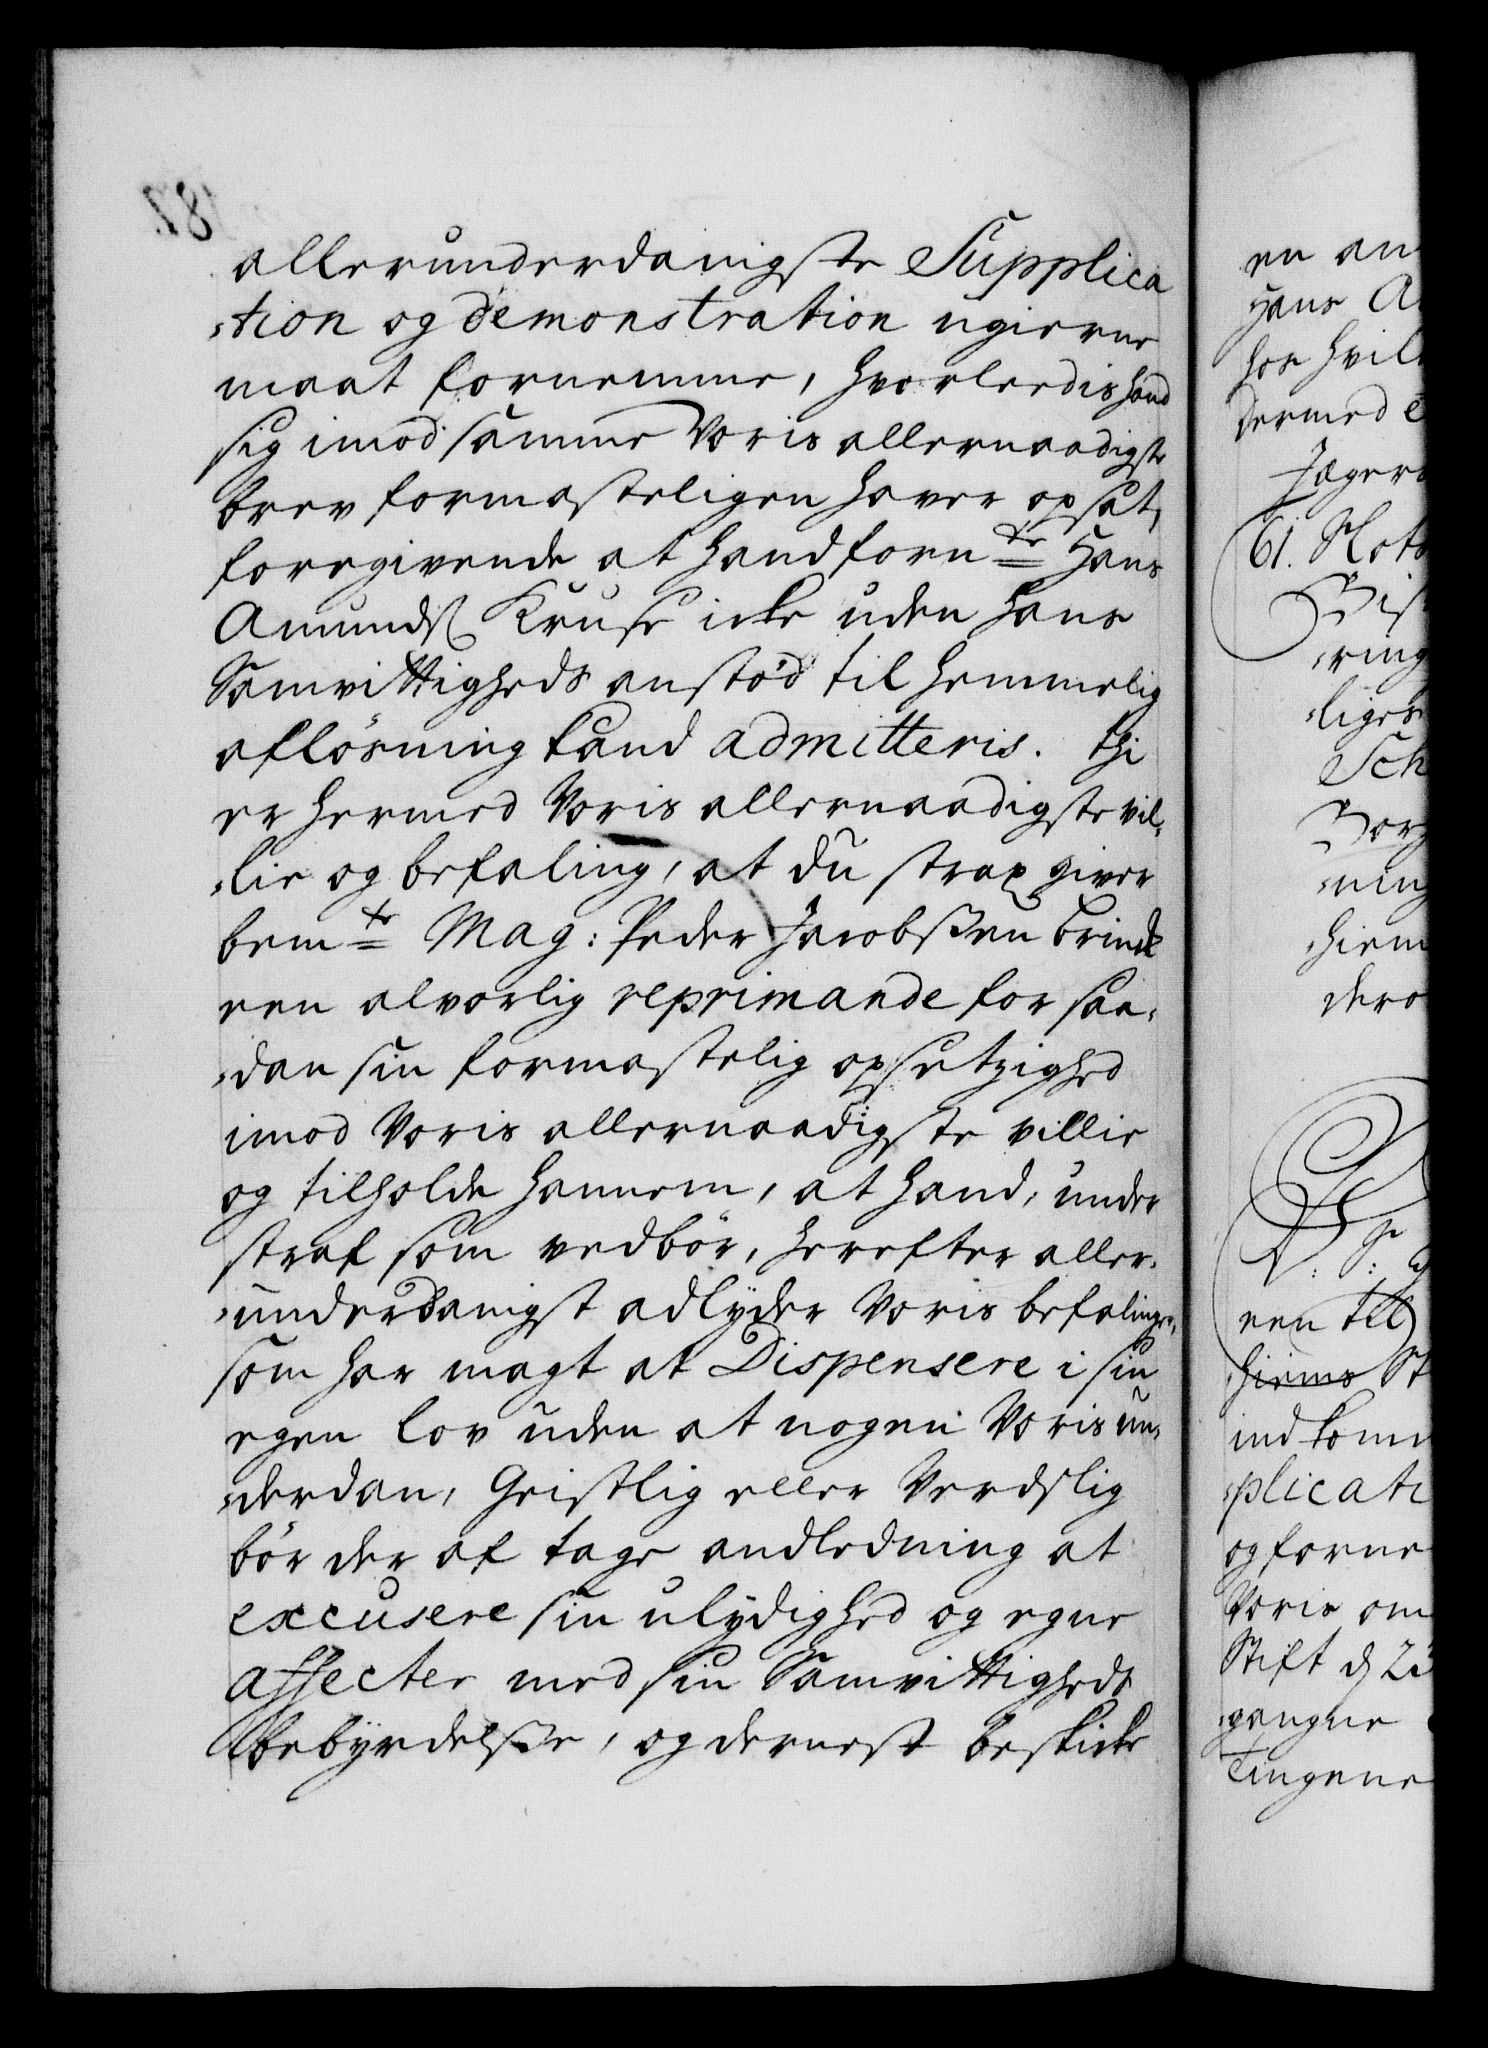 allerunderdanigste Supplica
=tion og demonstration ugierne
maat fornemme, hvorledis hand
sig imod samme Voris allernaadigste
brev formasteligen haver opsat,
foregivende at hand forn.te Hans
Amunds. Kruse icke uden hans
Samvittigheds anstød til hemmelig
afløsning kand admitteris. thi
er hermed Voris allernaadigste vil=
=lie og befaling, at du strax giver
bem.te Mag: Peder Jacobssen Brinck
een alvorlig reprimande for saa=
=dan sin formastelig opsetzighed
imod Voris allernaadigste villie
og tilholde hannem, at hand, under
straf som vedbør, herefter aller=
=underdanigst adlyder Voris befalinger,
som har magt at Dispensere i sin
egen lov uden at nogen Voris un=
=derdan, Geistlig eller Verdslig
bør der af tage andledning at
excusere sin ulydighed og egne
affecter med sin Samvittigheds
bebyrdelsse, og dernest beskicke
en an
Hans A
hos hvil
dermed
Jæger
61. Slots
=ring
=liger
Sch
Borg
=ning
=hiem
dero
een til
=hiems St
indkom
=plicati
og forne
Voris om
Stift d 23
=gangne
Tingene